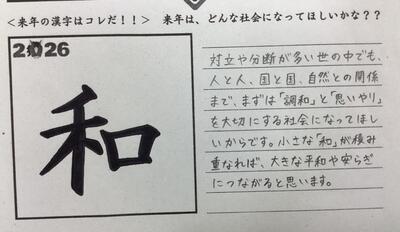 ＜来年の漢字はコレだ！！＞　来年は、どんな社会になってほしいかな？？
2026
和
対立や分断が多い世の中でも、
人と人、国と国、自然との関係
まで、まずは「調和」と「思いやり」
を大切にする社会になってほし
いからです。小さな「和」が積み
重なれば、大きな平和や安らぎ
につながると思います。